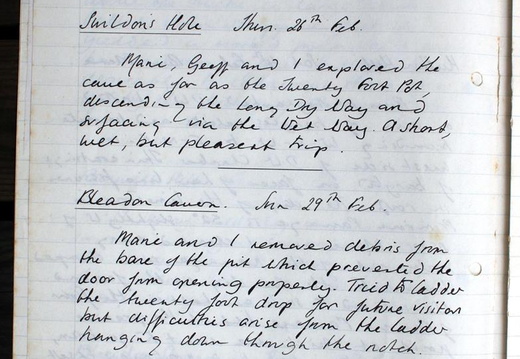 Swildon's Hole Thur. 26th Feb.
Marie, Geoff and I explored the
cave as far as the Twenty Foot Pot,
descending the Long Dry Way and
surfacing via the Wet Way. A short,
wet, but pleasent trip.
Bleadon Cavern. Sun 29th Feb.
Marie and I removed debris from
the base of the pit which prevented the
door from opening properly. Tried to ladder
the twenty foot drop for future visitors
but difficulties arise from the ladder
hanging down though the notch.